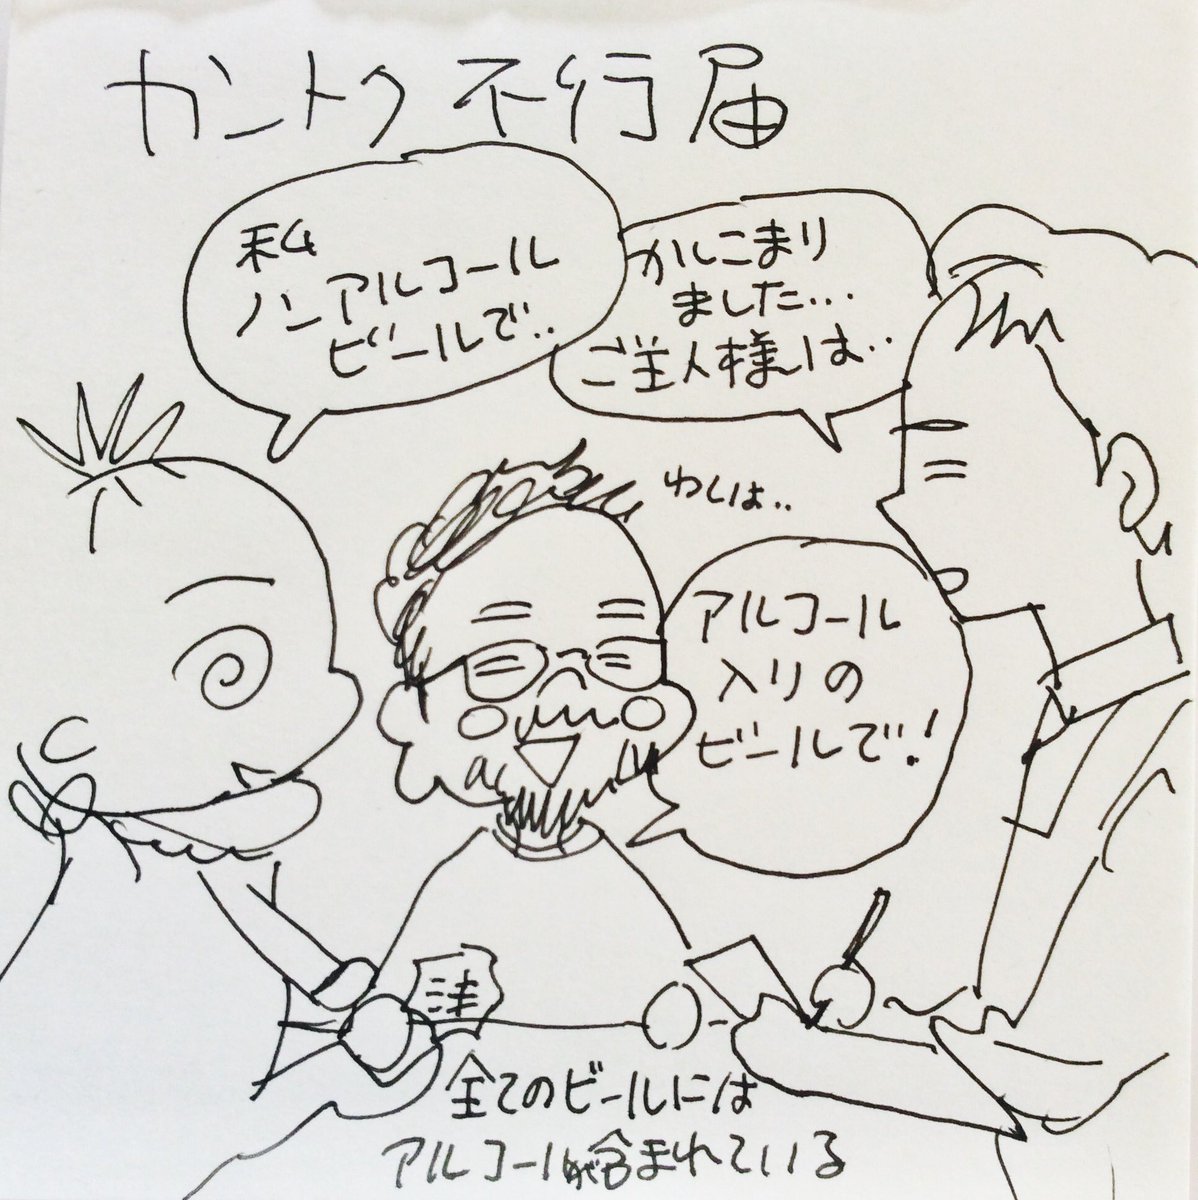 カントク不行届
私
ノンアルコール
ビールで‥
かしこまり
ました…
ご主人様は‥
わしは‥
アルコール
入りの
ビールで!
全てのビールには
アルコールが含まれている